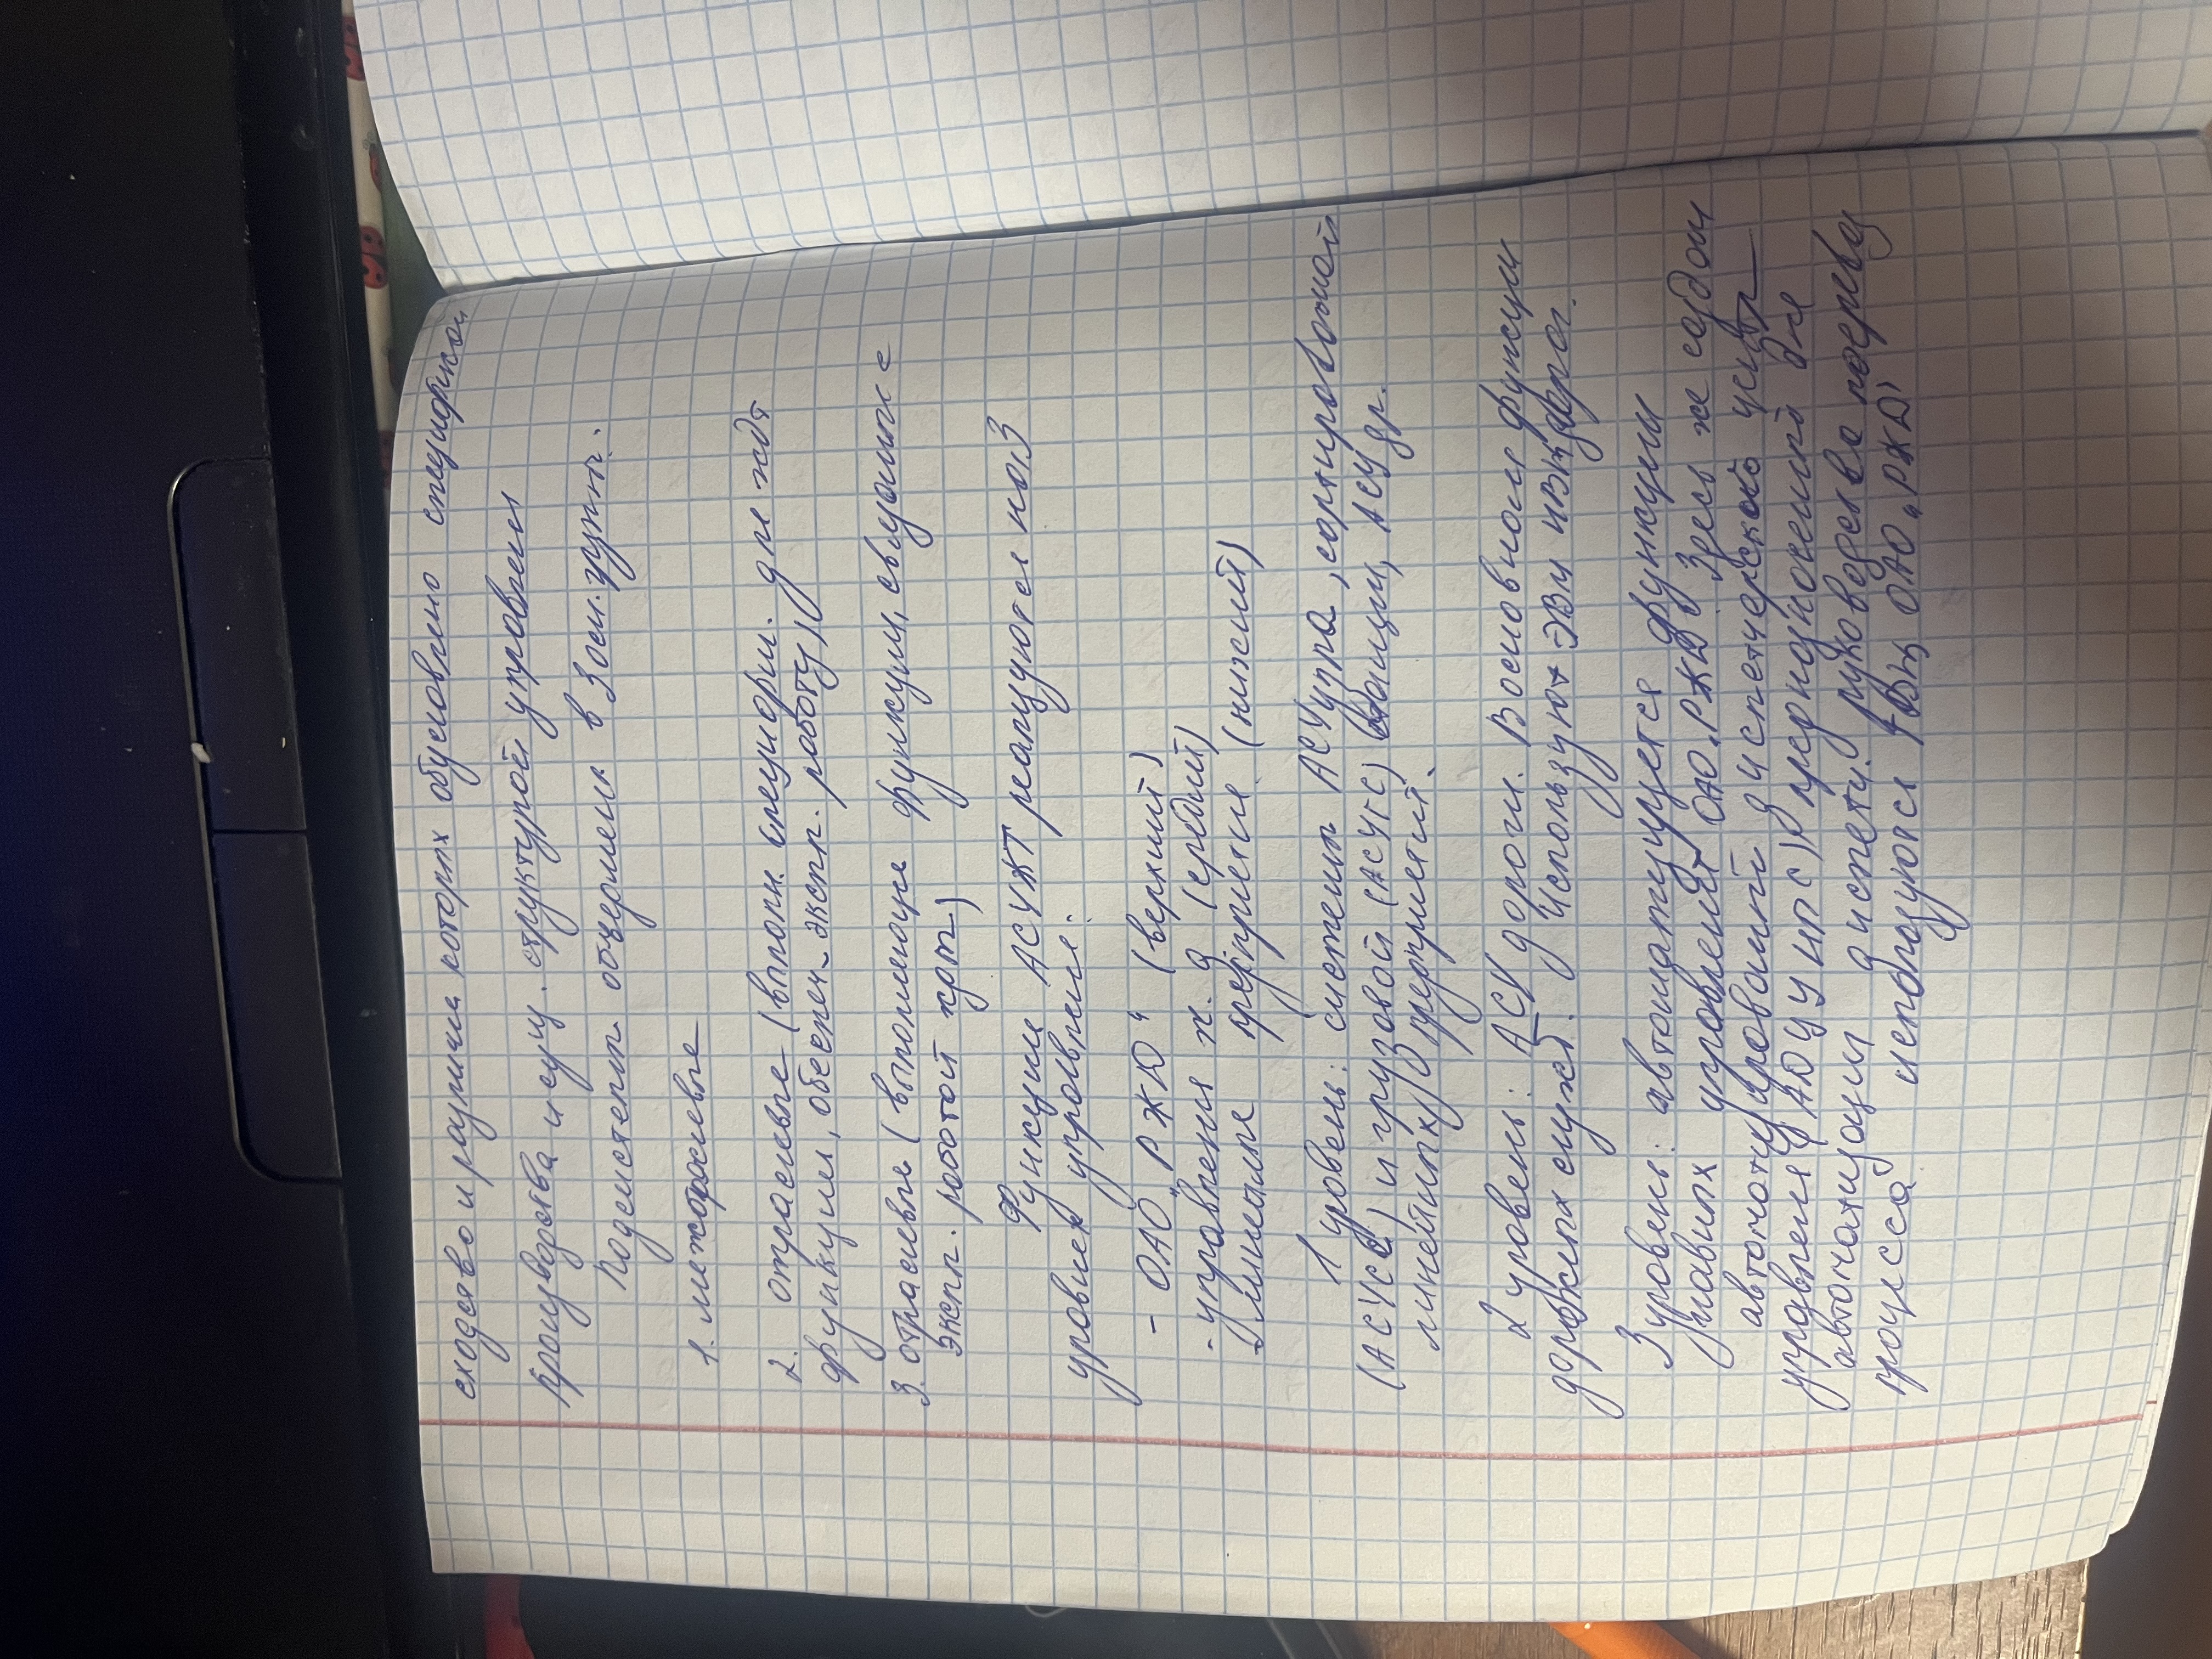 сходство и различия которых обусловлено спецификой
производства и сущ. структурой управления
Подсистемы объединены в 3 осн. группы.
1. межотраслевые
2. отраслевые (выполн. специфич. для ждт
функции, обеспеч. экспл. работу)
3. отраслевые (выполняющие функции, связанные с
экспл. работой ждт)
Функции АСУЖТ реализуются на 3
уровнях управления:
- ОАО „РЖД" (верхний)
- управления ж. д (средний)
- линейные предприятия (нижний)
1 уровень: системы АСУ узла, сортировочной
(АСУСС) и грузовой (АСУГС) станции, АСУ др.
линейных предприятий.
2 уровень: АСУ дороги. В основном функции
дорожных служб. Используют ЭВМ ИВЦ дорог.
3 уровень: автоматизируется функции
главных управлений ОАО „РЖД" Здесь же создан
автоматизирован диспетчерского центр
управления (АДЦУ МПС) предназначенный для
автоматизации диспетч. руководства перевоз
процесса используются ГВЦ ОАО „РЖД"